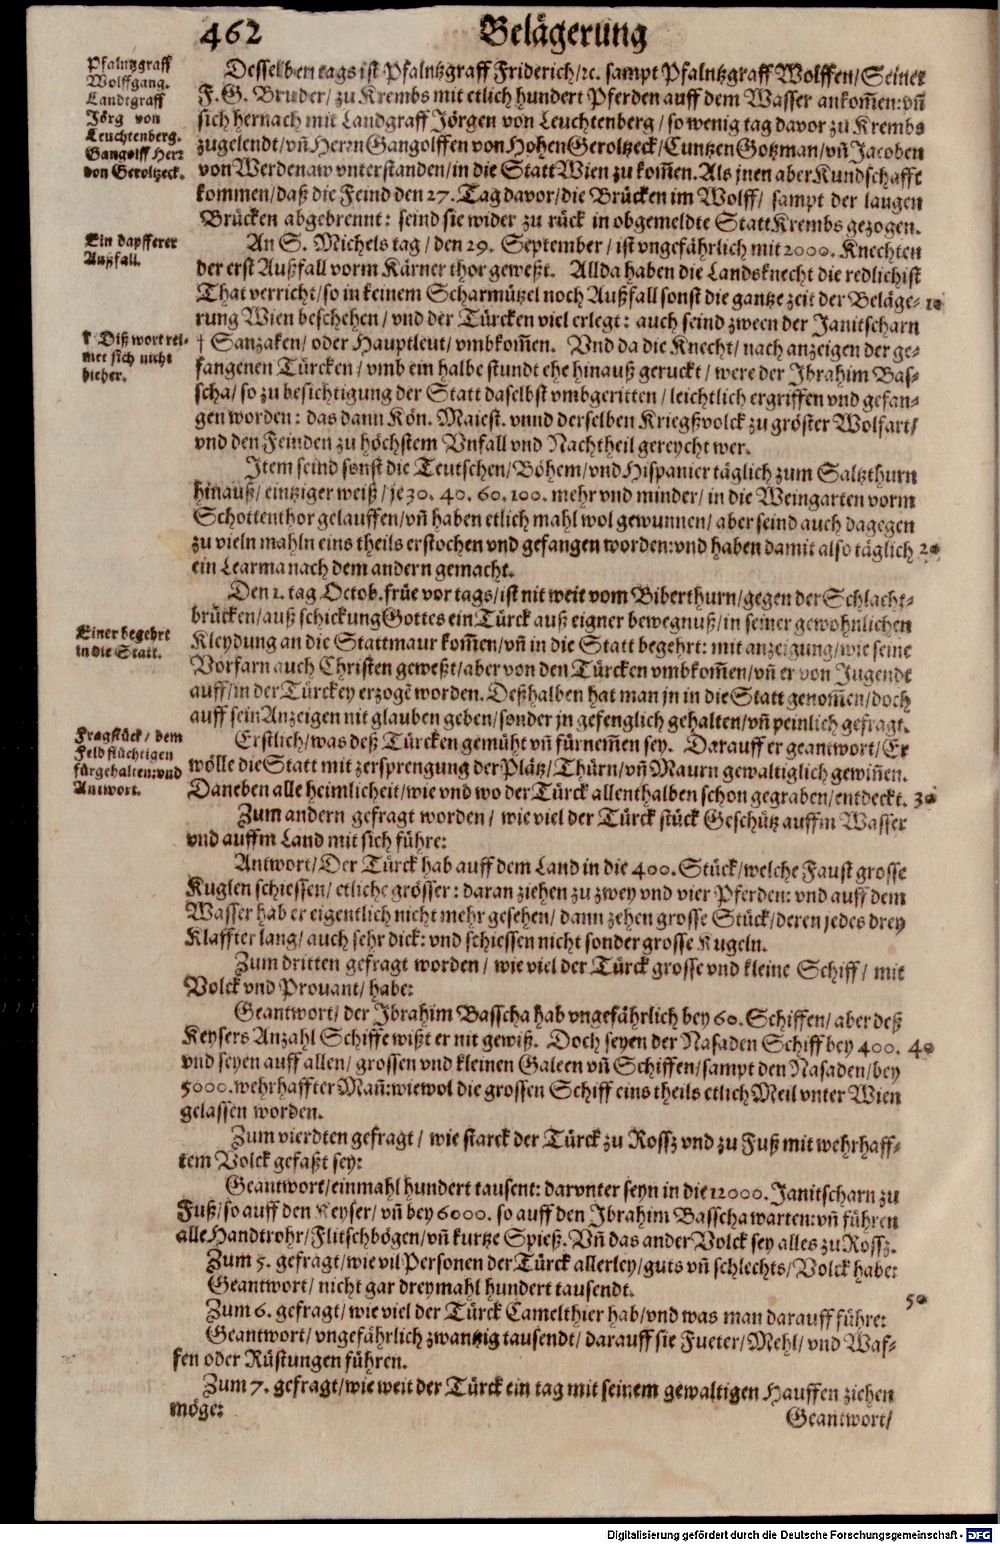 462 Belägerung
Pfalntzgraff
Wolffgang.
Landtgraff
Jörg von
Leuchtenberg.
Gangolff Herr
von Geroltzeck.
Desselben tags ist Pfalntzgraff Friderich/ꝛc. sampt Pfalntzgraff Wolffen/Seiner
F. G. Bruder/zu Krembs mit etlich hundert Pferden auff dem Wasser ankom̃en:vn̄
sich hernach mit Landgraff Jörgen von Leuchtenberg/so wenig tag davor zu Krembs
zugelendt/vn̄ Herrn Gangolffen von HohenGeroltzeck/Cuntzen Gotzman/vn̄ Jacoben
von Werdenaw vnterstanden/in die Statt Wien zu kom̃en. Als jnen aber Kundschafft
kommen/daß die Feind den 27. Tag davor/die Brücken im Wolff/ sampt der langen
Brücken abgebrennt: seind sie wider zu rück in obgemeldte Statt Krembs gezogen.
Ein dapfferer
Außfall.
An S. Michels tag/den 29. September/ist vngefährlich mit 2000. Knechten
der erst Außfall vorm Kärner thor geweßt. Allda haben die Landsknecht die redlichist
That verricht/so in keinem Scharmützel noch Außfall sonst die gantze zeit der Beläge- 10
rung Wien beschehen/vnd der Türcken viel erlegt: auch seind zween der Janitscharn
† Diß wort rei-
met sich nicht
hieher.
† Sanzaken/oder Hauptleut/vmbkom̃en. Vnd da die Knecht/nach anzeigen der ge-
fangenen Türcken/vmb ein halbe stundt ehe hinauß geruckt/were der Jbrahim Bas-
scha/so zu besichtigung der Statt daselbst vmbgeritten/leichtlich ergriffen vnd gefan-
gen worden: das dann Kön. Maiest. vnnd derselben Kriegßvolck zu gröster Wolfart/
vnd den Feinden zu höchstem Vnfall vnd Nachtheil gereycht wer.
Jtem seind sonst die Teutschen/Böhem/vnd Hispanier täglich zum Saltzthurn
hinauß/eintziger weiß/je 30. 40. 60. 100. mehr vnd minder/in die Weingarten vorm
Schottenthor gelauffen/vn̄ haben etlich mahl wol gewunnen/aber seind auch dagegen
zu vieln mahln eins theils erstochen vnd gefangen worden:vnd haben damit also täglich 20
ein Learma nach dem andern gemacht.
Den 1. tag Octob. früe vor tags/ist nit weit vom Biberthurn/gegen der Schlacht-
brücken/auß schickung Gottes ein Türck auß eigner bewegnuß/in seiner gewohnlichen
Einer begehrt
in die Statt.
Kleydung an die Stattmaur kom̃en/vn̄ in die Statt begehrt: mit anzeigung/wie seine
Vorfarn auch Christen geweßt/aber von den Türcken vmbkom̃en/vn̄ er von Jugendt
auff/in der Türckey erzogẽ worden. Deßhalben hat man jn in die Statt genom̃en/doch
auff sein Anzeigen nit glauben geben/sonder jn gefenglich gehalten/vn̄ peinlich gefragt.
Fragstück/dem
Feldflüchtigen
fürgehalten:vnd
Antwort.
Erstlich/was deß Türcken gemüht vn̄ fürnem̃en sey. Darauff er geantwort/Er
wölle die Statt mit zersprengung der Plätz/Thürn/vn̄ Maurn gewaltiglich gewin̄en.
Daneben alle heimlicheit/wie vnd wo der Türck allenthalben schon gegraben/entdeckt. 30
Zum andern gefragt worden/wie viel der Türck stück Geschütz auffm Wasser
vnd auffm Land mit sich führe:
Antwort/Der Türck hab auff dem Land in die 400. Stück/welche Faust grosse
Kuglen schiessen/etliche grösser: daran ziehen zu zwey vnd vier Pferden: vnd auff dem
Wasser hab er eigentlich nicht mehr gesehen/dann zehen grosse Stück/deren jedes drey
Klaffter lang/auch sehr dick: vnd schiessen nicht sonder grosse Kugeln.
Zum dritten gefragt worden/wie viel der Türck grosse vnd kleine Schiff/mit
Volck vnd Provant/habe:
Geantwort/der Jbrahim Basscha hab vngefährlich bey 60. Schiffen/aber deß
Keysers Anzahl Schiffe wißt er nit gewiß. Doch seyen der Nasaden Schiff bey 400. 40
vnd seyen auff allen/grossen vnd kleinen Galeen vn̄ Schiffen/sampt den Nasaden/bey
5000. wehrhaffter Man̄:wiewol die grossen Schiff eins theils etlich Meil vnter Wien
gelassen worden.
Zum vierdten gefragt/wie starck der Türck zu Rossz vnd zu Fuß mit wehrhaff-
tem Volck gefaßt sey:
Geantwort/einmahl hundert tausent: darvnter seyn in die 12000. Janitscharn zu
Fuß/so auff den Keyser/vn̄ bey 6000. so auff den Jbrahim Basscha warten:vn̄ führen
alle Handtrohr/Flitschbögen/vn̄ kurtze Spieß. Vn̄ das ander Volck sey alles zu Rossz.
Zum 5. gefragt/wie vil Personen der Türck allerley/guts vn̄ schlechts/Volck habe:
Geantwort/nicht gar dreymahl hundert tausendt.
50
Zum 6. gefragt/wie viel der Türck Camelthier hab/vnd was man darauff führe:
Geantwort/vngefährlich zwantzig tausendt/darauff sie Fueter/Mehl/vnd Waf-
fen oder Rüstungen führen.
Zum 7. gefragt/wie weit der Türck ein tag mit seinem gewaltigen Hauffen ziehen
möge:
Geantwort/
Digitalisierung gefördert durch die Deutsche Forschungsgemeinschaft - DFG